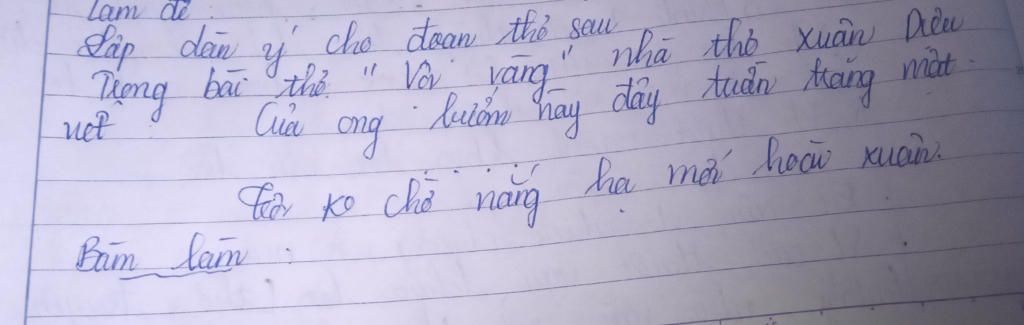 Làm đề
Lập dàn ý cho đoạn thơ sau
Trong bài thơ " Vội vàng " nhà thơ xuân Diệu
viết : Của ong bướm này đây tuần tháng mật
.......
Tôi ko chờ nắng hạ mới hoài xuân.
Bài làm :